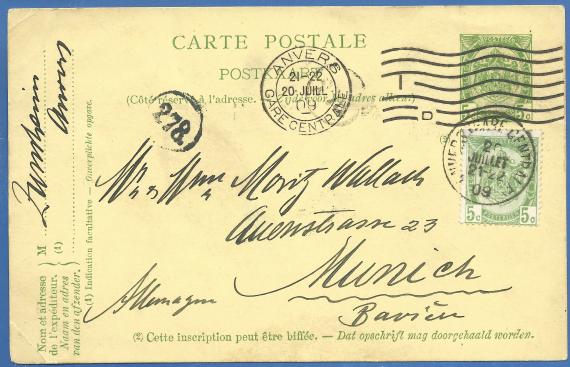 CARTE POSTALE
POSTKAART
(Côté réservé à l'adresse. — Zijde voor het adres alleen.)
ANVERS
21-22
20 JUILL
09
GARE CENTRALE
278
D
5c 5c
JUILLET
21-22
09
Mr & Mme Moritz Wallach
Auenstrasse 23
Munich
Allemagne
Bavière
(2) Cette inscription peut être biffée. — Dat opschrift mag doorgehaald worden.
Nom et adresse
de l'expéditeur.
Naam en adres
van den afzender.
M
(1)
Anvers
(1) Indication facultative — Onverplichte opgave.